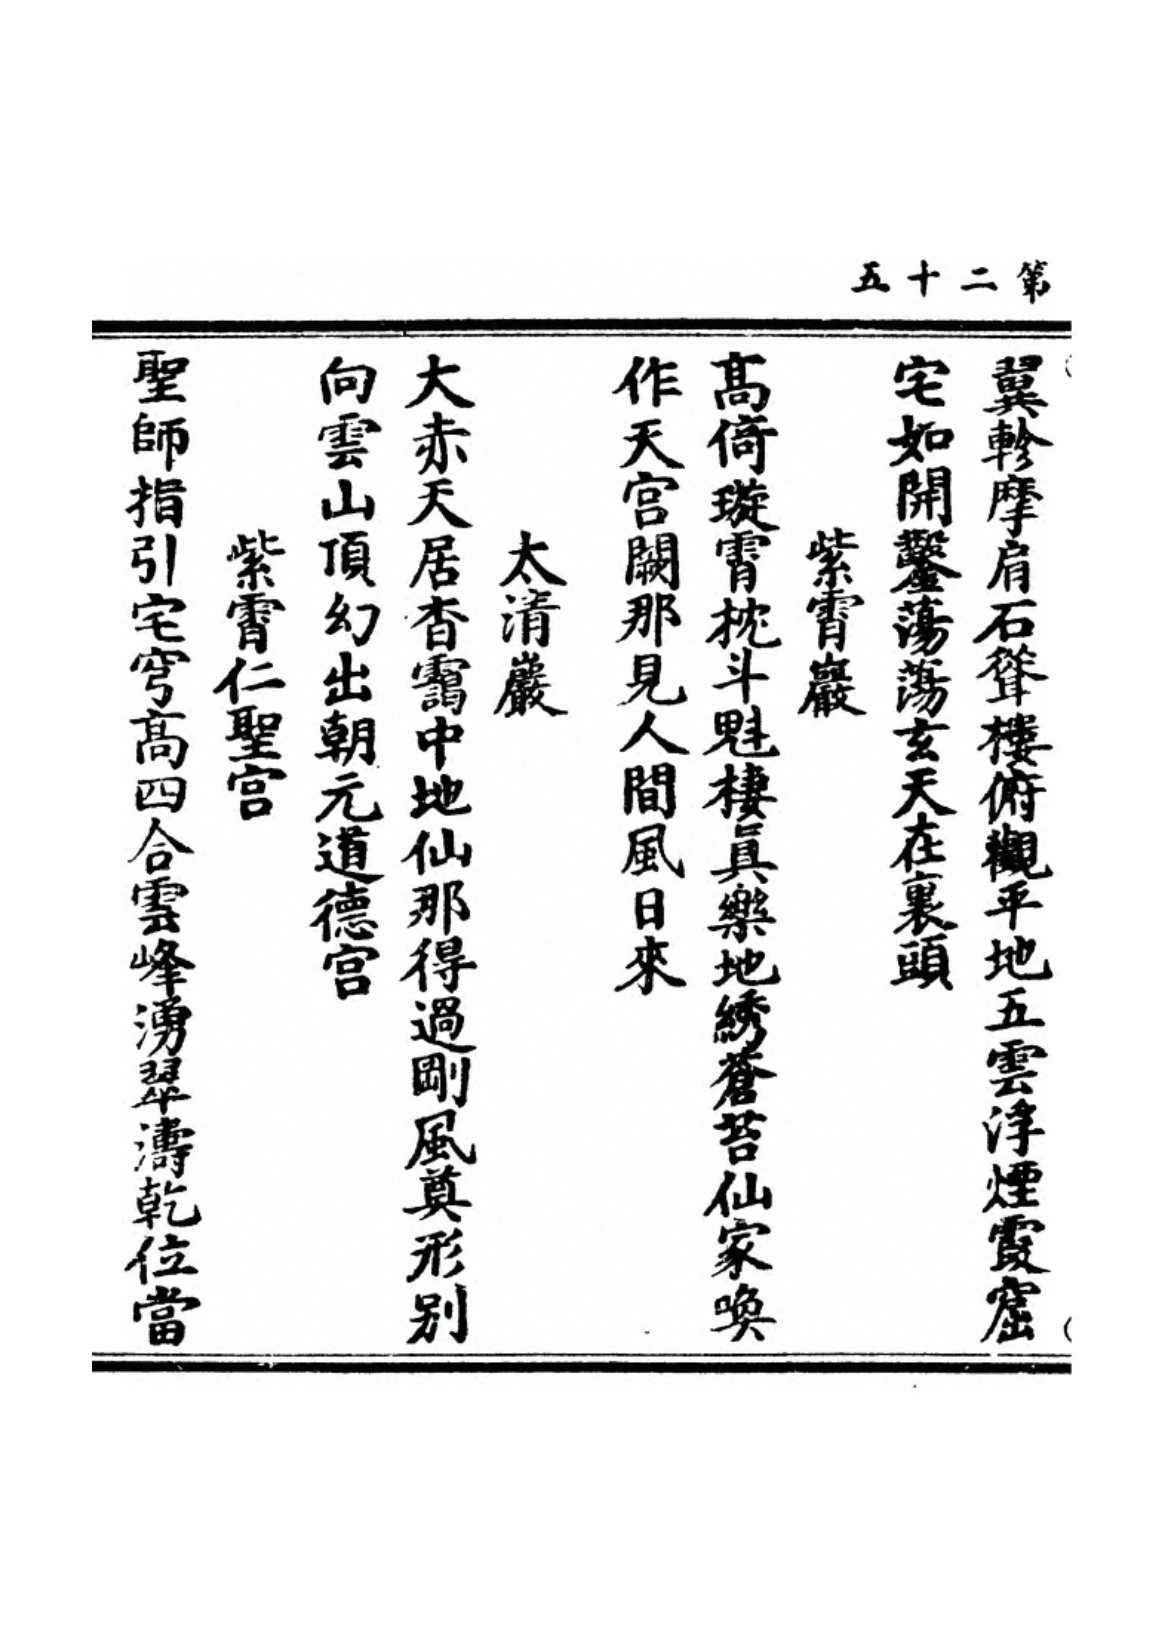 第二十五
翼軫摩肩石聳樓俯觀平地五雲浮煙霞窟
宅如開鑿蕩蕩玄天在裏頭
紫霄巖
髙倚璇霄枕斗魁棲眞樂地綉蒼苔仙家喚
作天宫闕那見人間風日來
太清巖
大赤天居杳靄中地仙那得過剛風奠形别
向雲山頂幻出朝元道德宫
紫霄仁聖宫
聖師指引宅穹髙四合雲峰湧翠濤乾位當